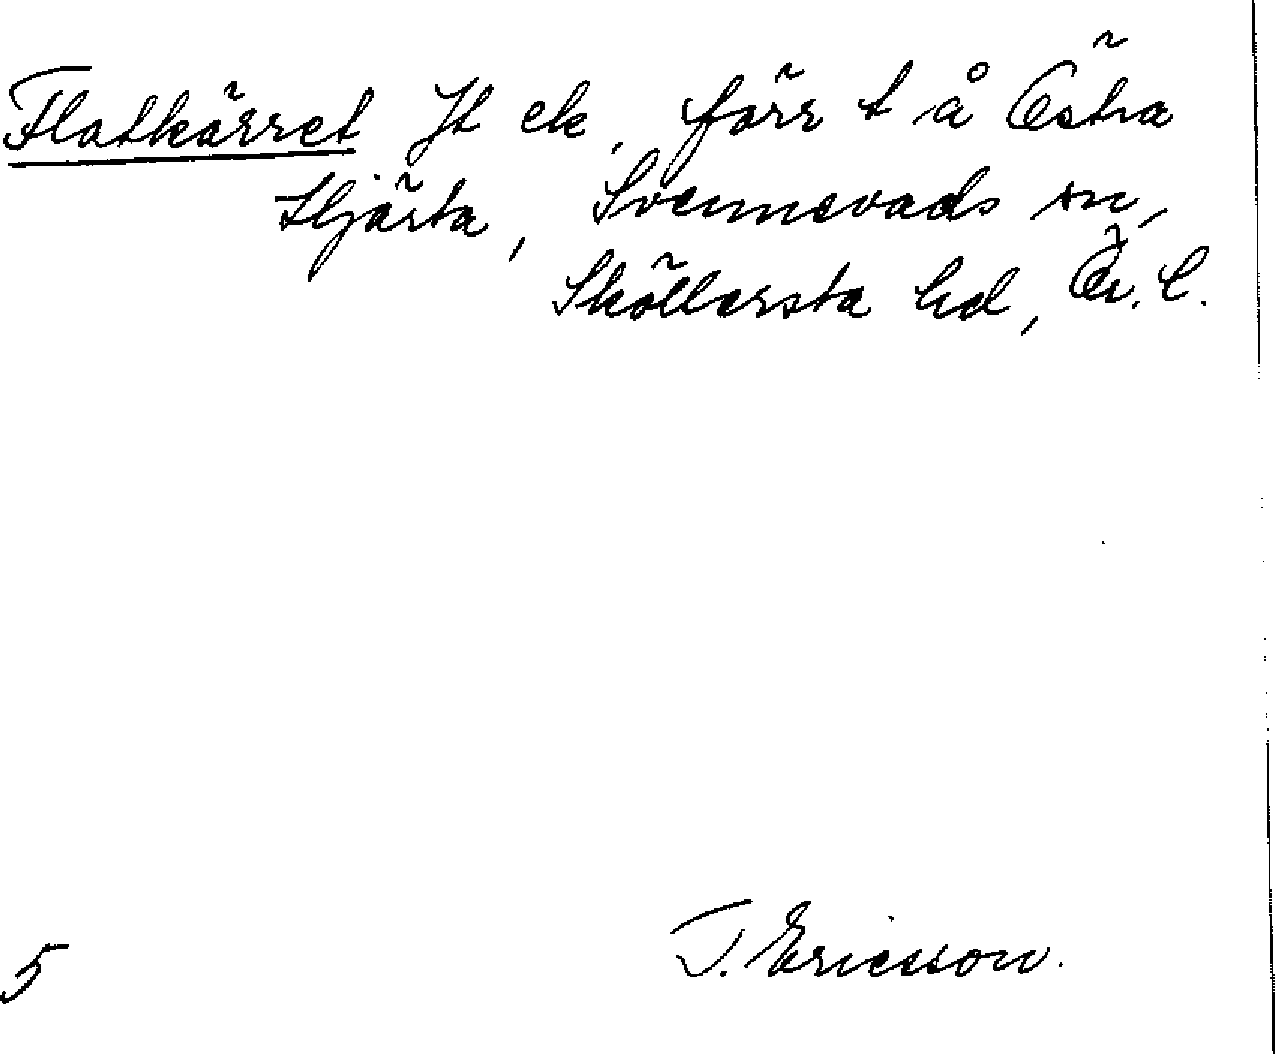 Flatkärret Jt ek, förr t å Östra
Hjärta, Svennevads sn,
Sköllersta hd, Ör. l.
T. Ericsson.
5